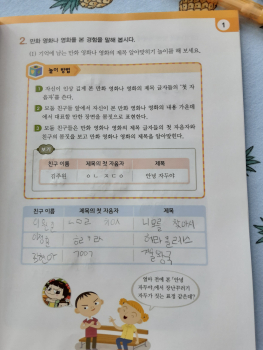 1
2. 만화 영화나 영화를 본 경험을 말해 봅시다.
(1) 기억에 남는 만화 영화나 영화의 제목 알아맞히기 놀이를 해 보세요.
놀이 방법
1 자신이 인상 깊게 본 만화 영화나 영화의 제목 글자들의 '첫 자음자'를 쓴다.
2 모둠 친구들 앞에서 자신이 본 만화 영화나 영화의 내용 가운데
에서 대표할 만한 장면을 몸짓으로 표현한다.
3 모둠 친구들은 만화 영화나 영화의 제목 글자들의 첫 자음자와
친구의 몸짓을 보고 만화 영화나 영화의 제목을 알아맞힌다.
보기
친구 이름 제목의 첫 자음자 제목
김주원 ㅇㄴ ㅈㄷㅇ 안녕 자두야
친구 이름 제목의 첫 자음자 제목
니모를 찾아서
ㄱㅇㅇㄱ 겨울왕국
얼마 전에 본 「안녕
자두야」에서 장난꾸러기
자두가 짓는 표정 같은데?